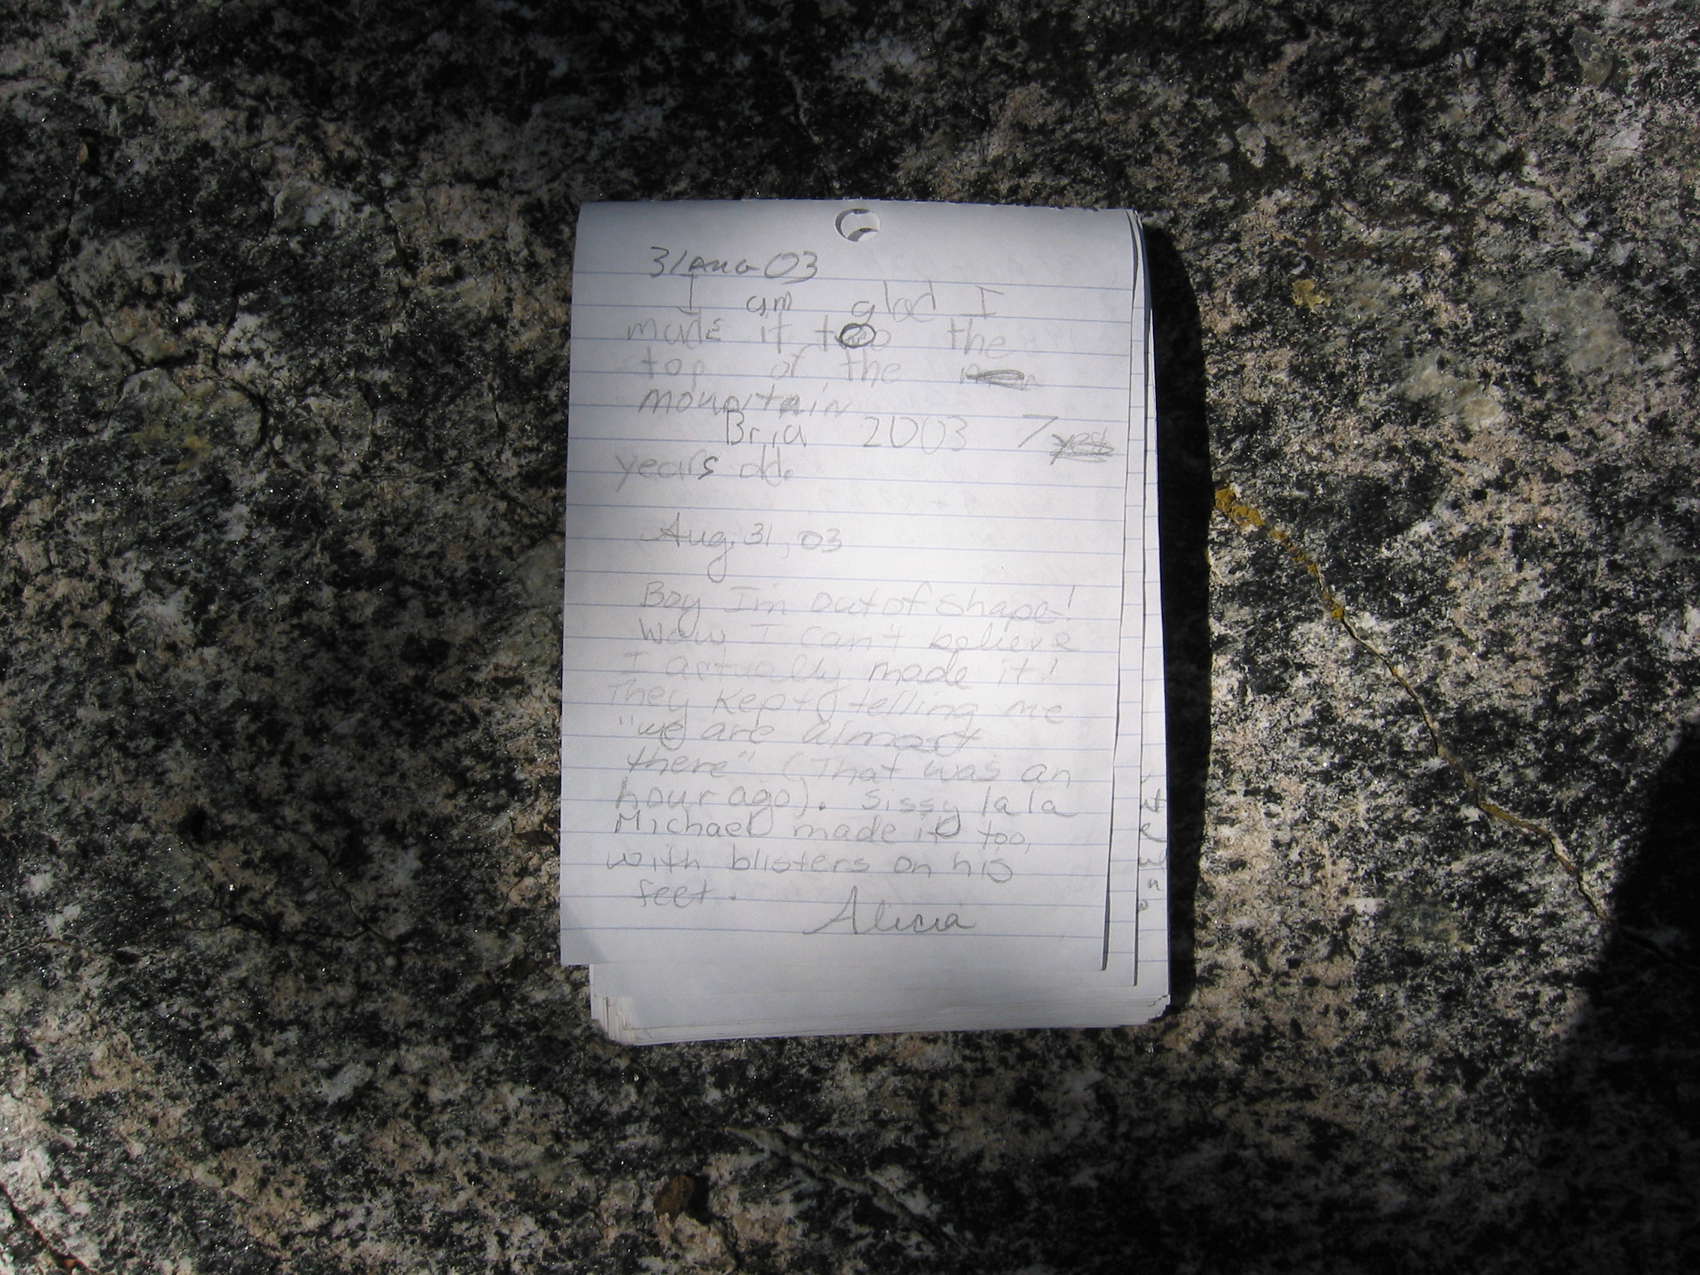 31 Aug 03
I am glad I
made it too the
top of the
mountain
Bria 2003 7
years old.
Aug, 31, 03
Boy I'm out of shape!
Wow I can't believe
I actually made it!
They Kept telling me
"we are almost
there" (That was an
hour ago). Sissy la la
Michael made it too,
with blisters on his
feet.
Alicia